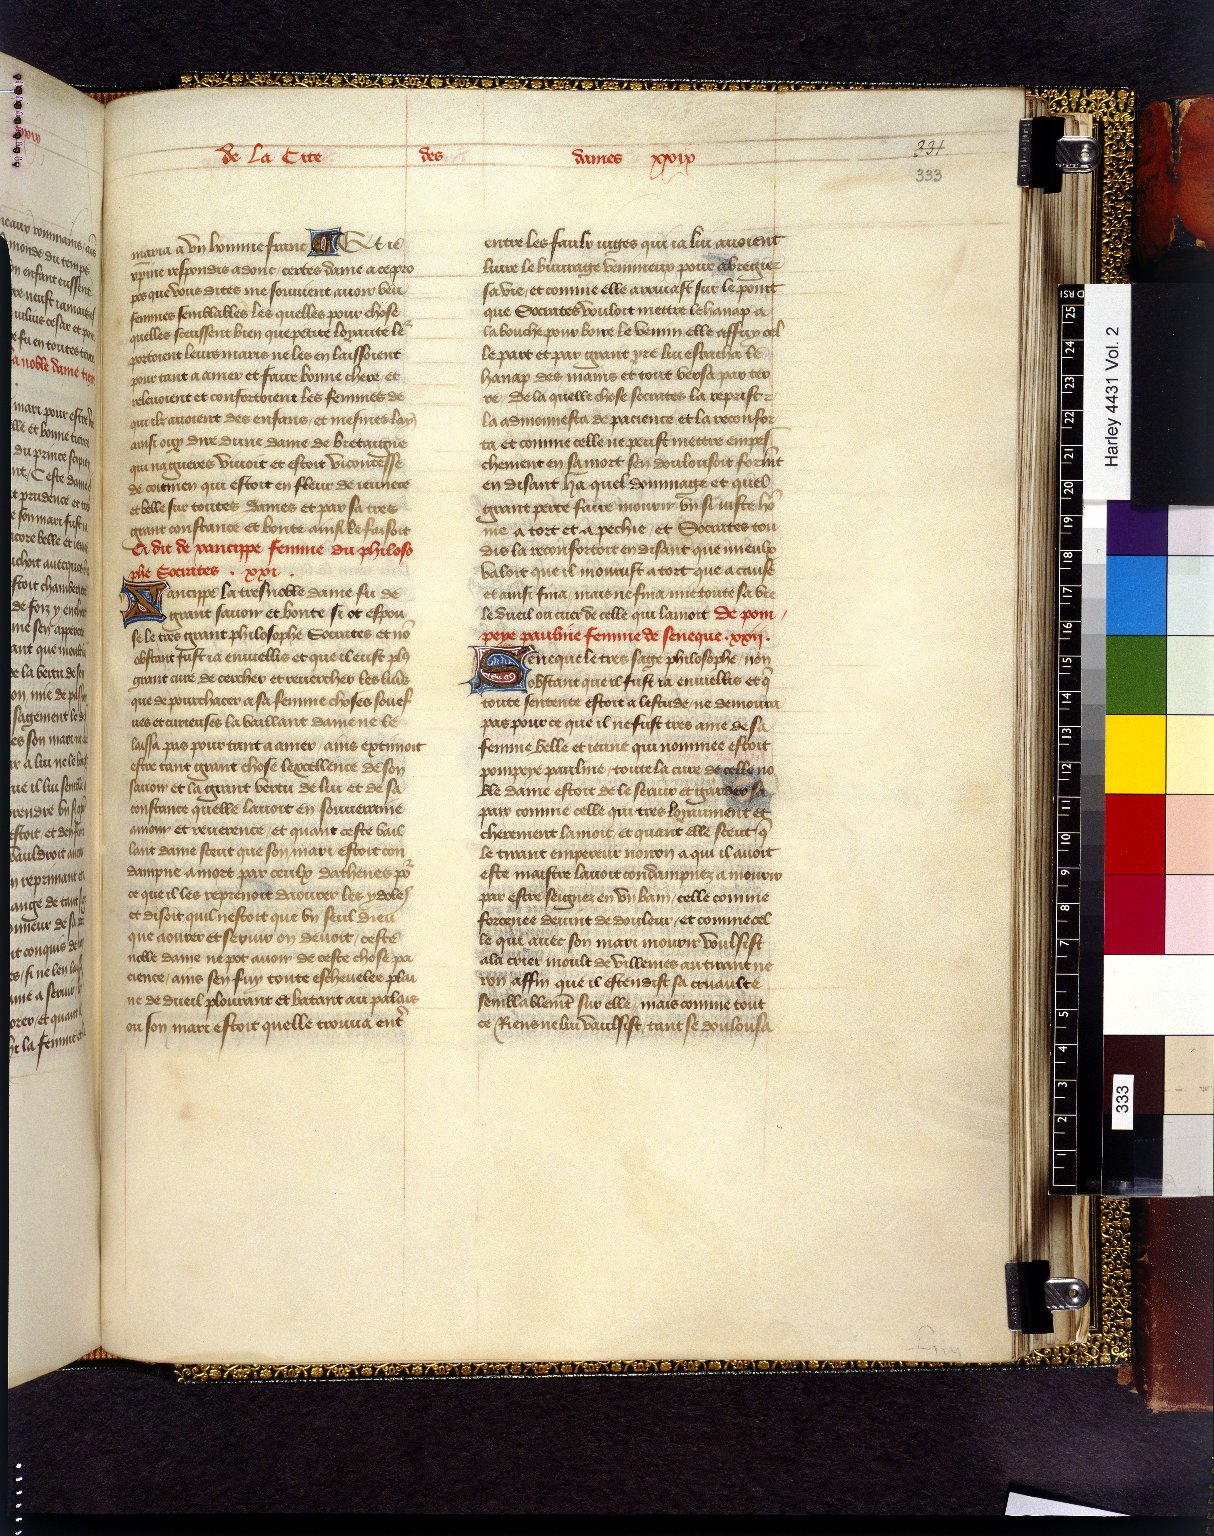 de la Cite des dames xxix
331
333
maria a vn homme franc Et ie
xpine respondis adonc certes dame a ce pro
pos que vous dittes me souuient auoir veu
femmes semblables les quelles pour chose
quelles sceussent bien que petite loyaute leur
portoient leurs maris ne les en laissoient
pour tant a amer et faire bonne chere et
releuoient et confortoient les femmes de
qui ilz auoient des enfans et mesmes lay
ainsi ouy dire dune dame de bretaigne
qui nagueres viuoit et estoit vicontesse
de coitmen qui estoit en fleur de ieunece
et belle sur toutes dames et par sa tres
grant constance et bonte ainsi le faisoit
Ci dit de xancippe femme du philoso
phe Socrates . xxi .
Xancippe la tres noble dame fu de
grant sauoir et bonte si ot espou
se le tres grant philosophe Socrates et no
obstant fust ia enuiellis et que il eust plus
grant cure de cercher et reuercher les liures
que de pourchacer a sa femme choses souef
ues et curieuses la vaillant dame ne le
laissa pas pour tant a amer / ains extimoit
estre tant grant chose lexcellence de son
sauoir et la grant vertu de lui et de sa
constance quelle lauoit en souueraine
amour et reuerence / et quant ceste vail
lant dame sceut que son mari estoit con
dampne a mort par ceulx dathenes por
ce que il les reprenoit daourer les ydoles
et disoit quil nestoit que vn seul dieu
que aourer et seruir on deuoit / ceste
noble dame ne pot auoir de ceste chose pa
cience / ains sen fuy toute escheuelee plai
ne de dueil plourant et batant au palais
ou son mari estoit quelle trouua entr
entre les faulx iuges qui ia lui auoient
liure le buurage venimeux pour abregier
sa vie / et comme elle arriuast sur le point
que Socrates vouloit mettre le hanap a
la bouche pour boire le venin elle affuy cel
le part et par grant yre lui esracha le
hanap des mains et tout versa par ter
re / de la quelle chose socrates la reprist et
la admonnesta de pacience et la reconfor
ta et comme celle ne peust mettre empes
chement en sa mort sen doulousoit forment
en disant ha quel dommage et quel
grant perte faire mourir vn si iuste ho
me a tort et a pechie / et Socrates tou
dis la reconfortoit en disant que mieulx
valoit que il mourust a tort que a cause
et ainsi fina mais ne fina mie toute sa vie
le dueil ou cuer de celle qui lamoit De pom
peye pauline femme de seneque . xxij .
Seneque le tres sage philosophe / non
obstant que il fust ia enuiellis et que
toute sentente estoit a lestude / ne demoura
pas pour ce que il ne fust tres ame de sa
femme belle et ieune qui nommee estoit
pompeye pauline / toute la cure de celle no
ble dame estoit de le seruir et garder sa
paix comme celle qui tres loyaument et
cherement lamoit / et quant elle sceut que
le tirant empereur noiron a qui il auoit
este maistre lauoit condampnez a mourir
par estre seignez en vn bain / celle comme
forcenee deuint de douleur / et comme cel
le qui auec son mari mourir voulsist
ala crier moult de villenies au tirant ne
ron affin que il estendist sa cruaulte
semblablement sur elle / mais comme tout
ce Riens ne lui vaulsist / tant se doulousa
Harley 4431 Vol. 2
333